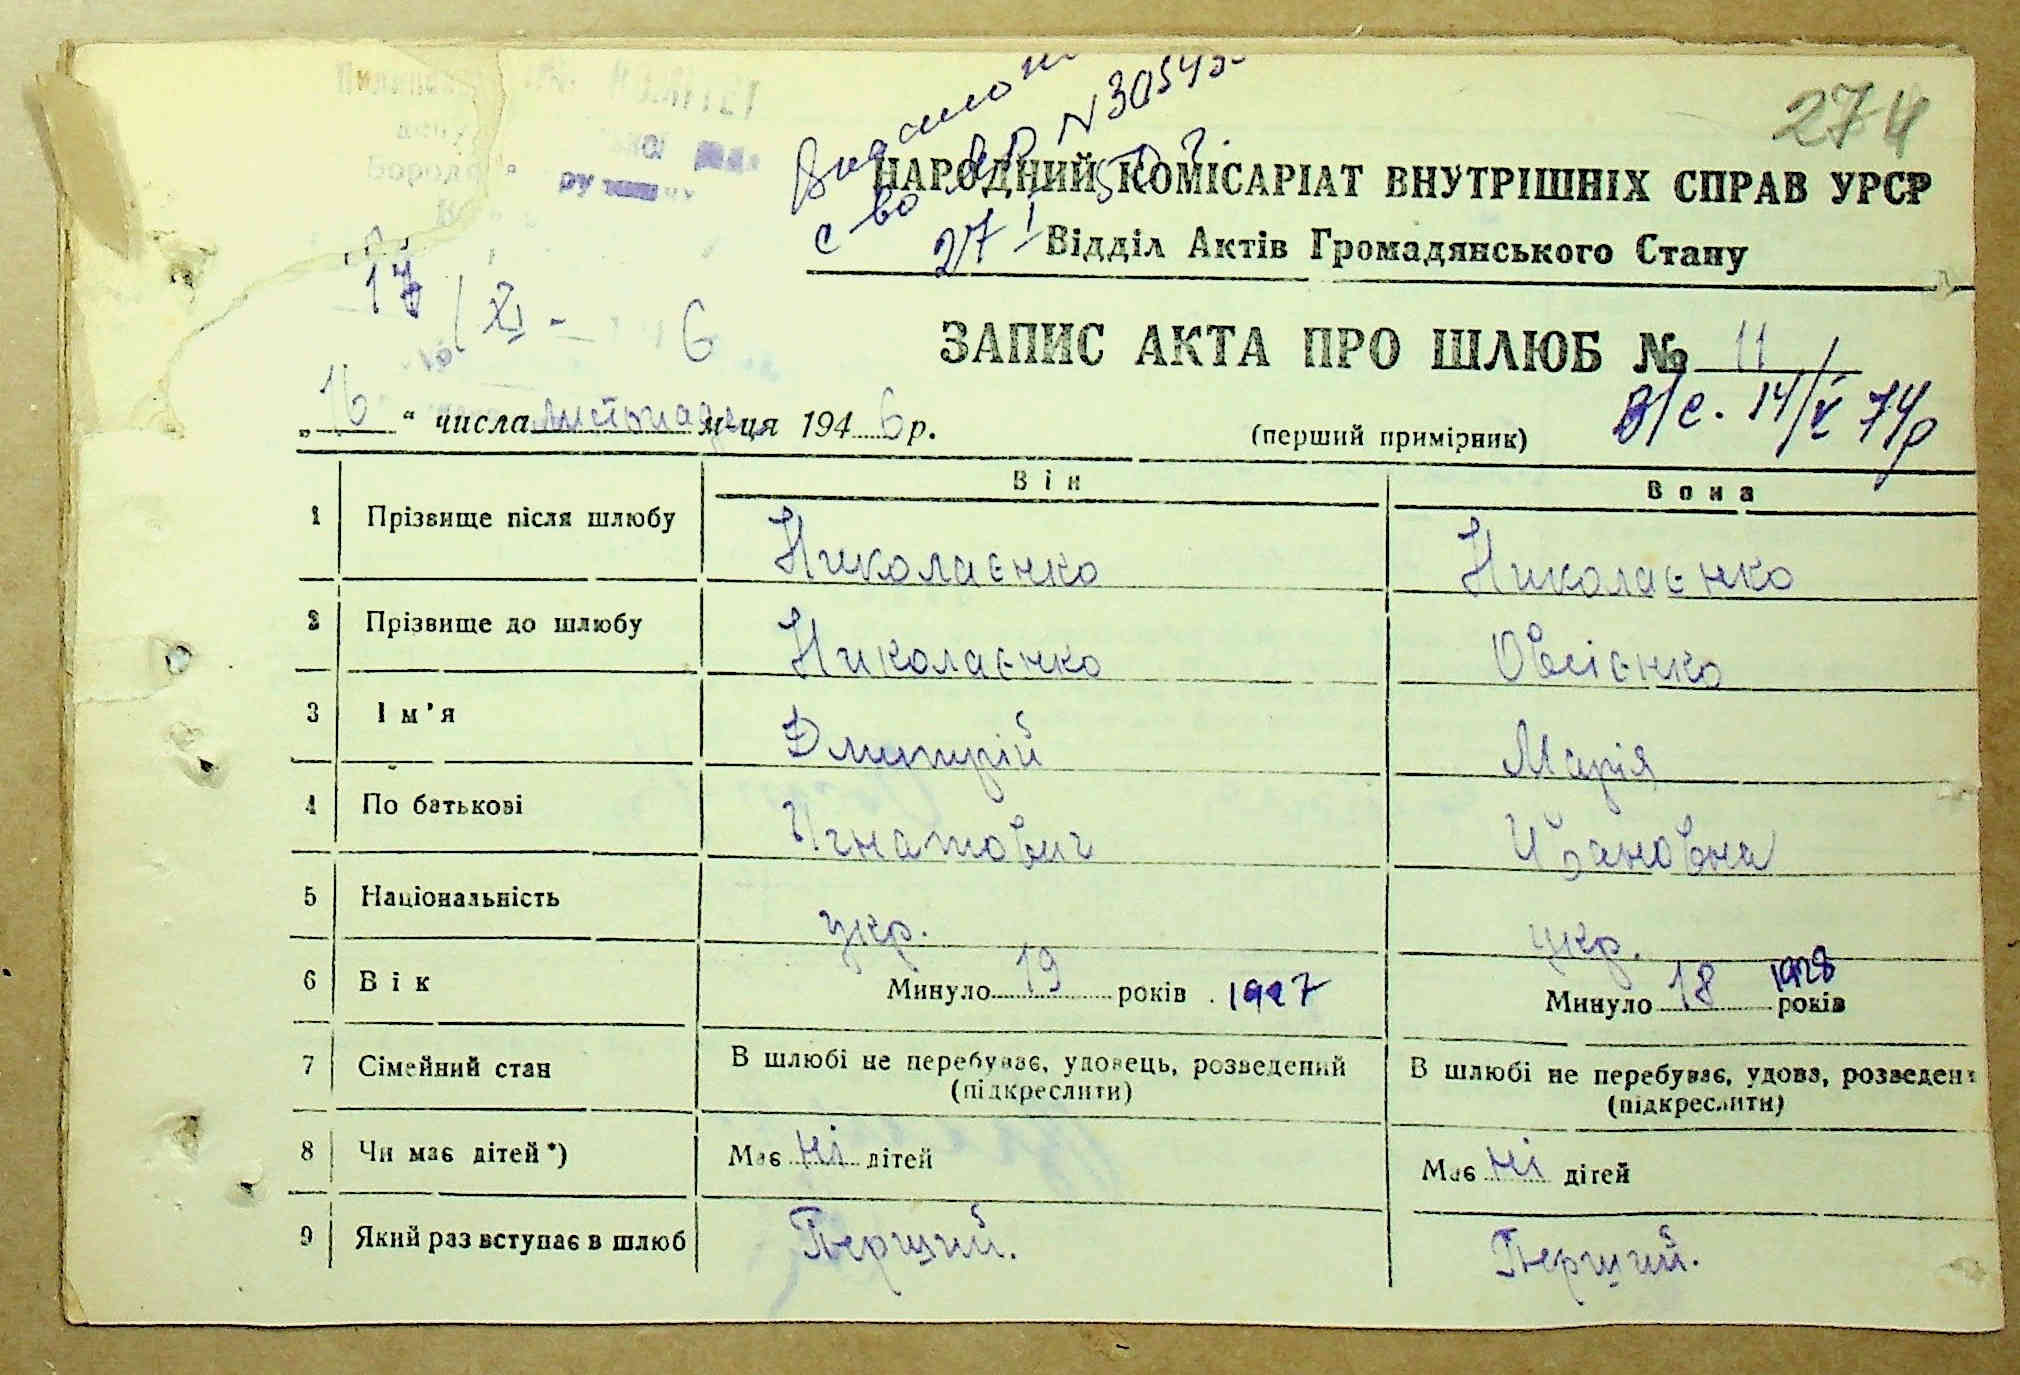 КОМІТЕТ
274
N 3054
с-во
НАРОДНИЙ КОМІСАРІАТ ВНУТРІШНІХ СПРАВ УРСР
27 I
Відділ Актів Громадянського Стану
17/XI - 6
ЗАПИС АКТА ПРО ШЛЮБ № 11
„16“ числа листопада м-ця 1946 р.
(перший примірник)
В/с. 14/X 74р
Він
Вона
1 Прізвище після шлюбу Николаєнко Николаєнко
2 Прізвище до шлюбу Николаєнко Овсієнко
3 Ім’я Дмитрій Марія
4 По батькові Игнатович Ивановна
5 Національність укр. укр.
6 Вік Минуло 19 років . 1927 Минуло 18 років 1928
7 Сімейний стан В шлюбі не перебуває, удовець, розведений (підкреслити) В шлюбі не перебуває, удова, розведен (підкреслити)
8 Чи має дітей*) Має ні дітей Має ні дітей
9 Який раз вступає в шлюб Перщий. Перщий.